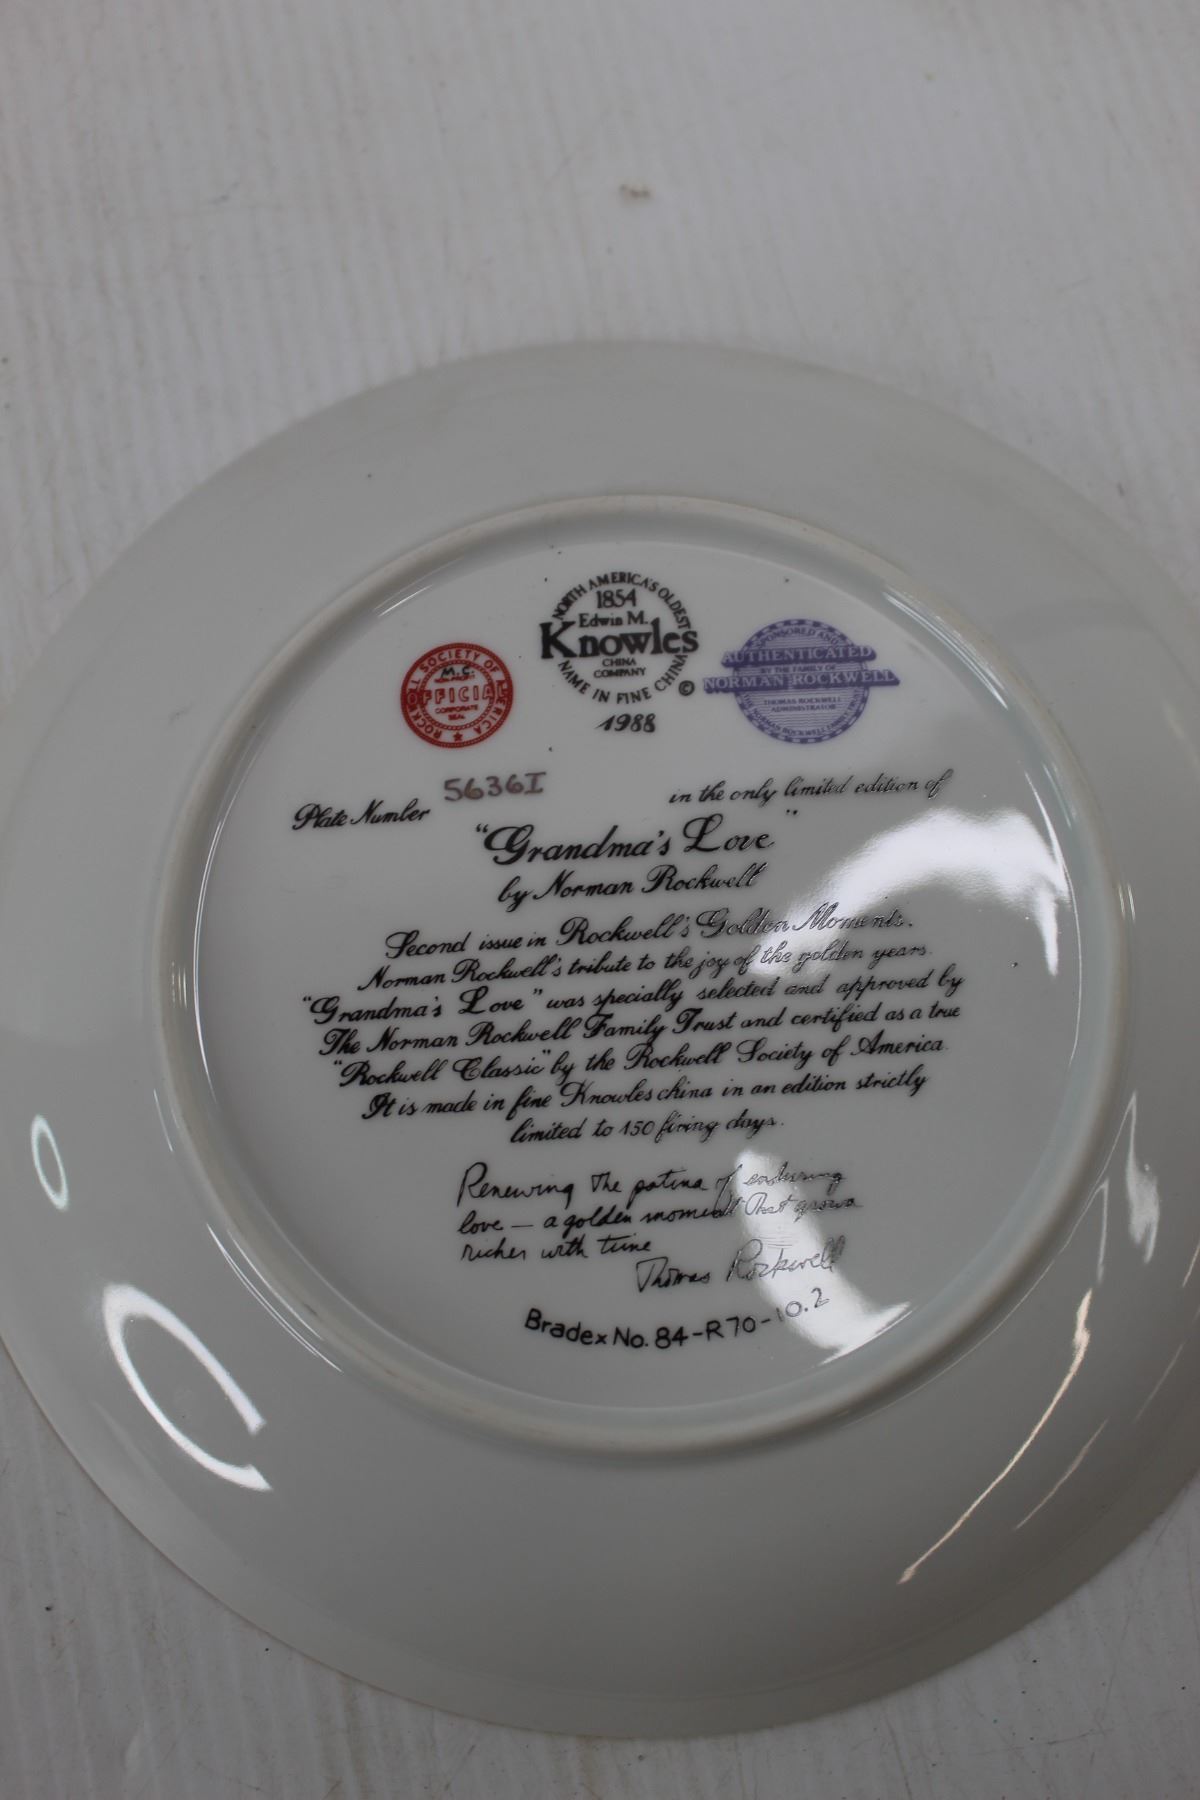 NORTH AMERICA'S OLDEST
1854
Edwin M.
Knowles
CHINA
COMPANY
NAME IN FINE CHINA
©
1988
ROCKWELL SOCIETY OF AMERICA
M.C.
OFFICIAL
CORPORATE
SEAL
SPONSORED AND
AUTHENTICATED
BY THE FAMILY OF
NORMAN ROCKWELL
THOMAS ROCKWELL
ADMINISTRATOR
Plate Number 5636I in the only limited edition of
"Grandma's Love"
by Norman Rockwell
Second issue in Rockwell's Golden Moments.
Norman Rockwell's tribute to the joy of the golden years.
"Grandma's Love" was specially selected and approved by
The Norman Rockwell Family Trust and certified as a true
"Rockwell Classic" by the Rockwell Society of America.
It is made in fine Knowles china in an edition strictly
limited to 150 firing days.
Renewing the patina of enduring
love — a golden moment that grows
richer with time
Thomas Rockwell
Bradex No. 84-R70-10.2